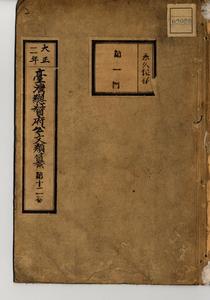 永久保存
第一門
大正二年
臺灣總督府公文類纂
第十二巻